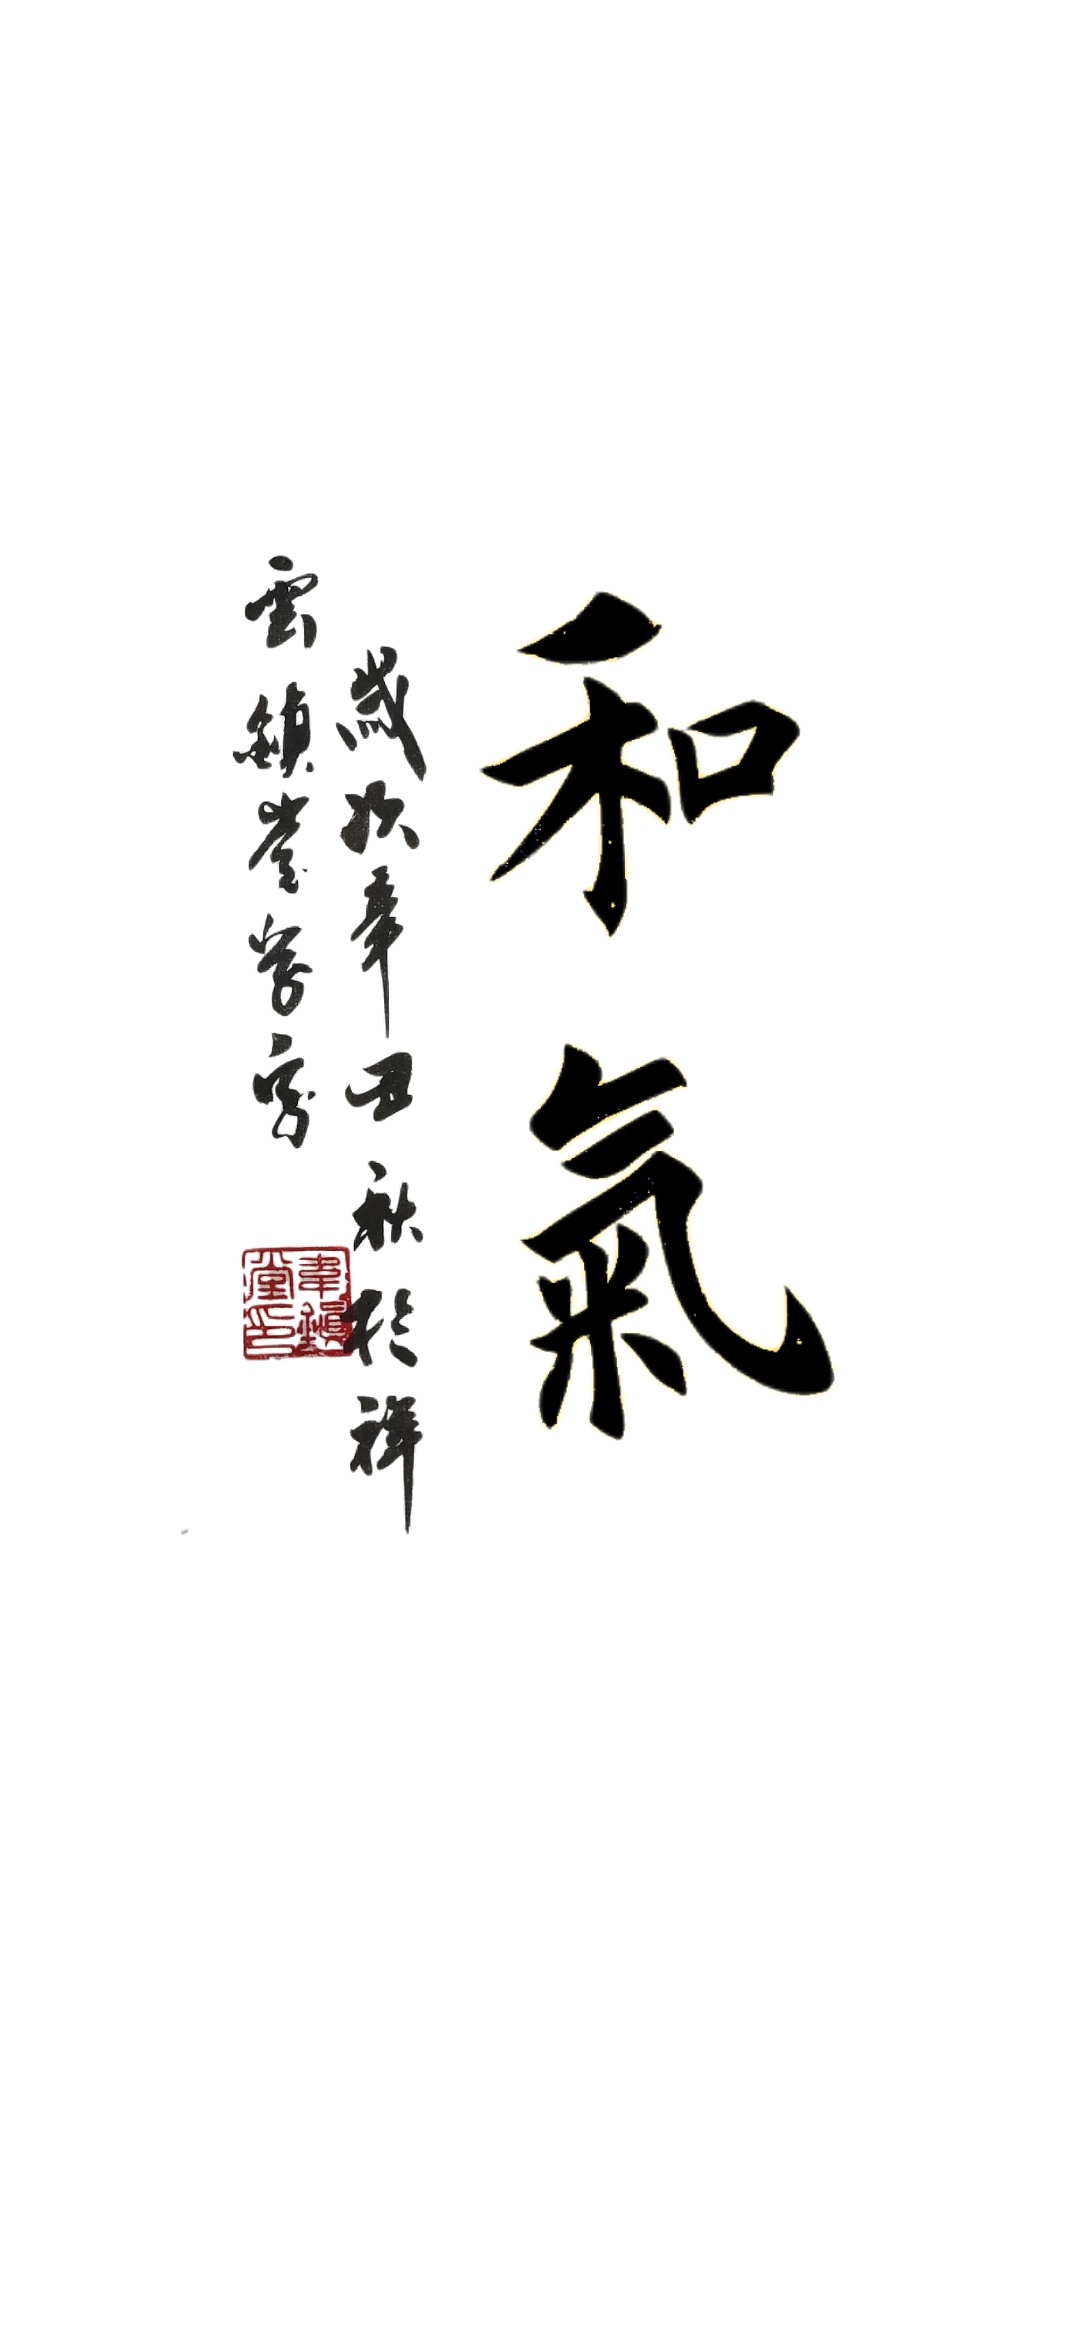 和氣
歲次辛丑秋於祥
雲鎮堂學書
韋鎮堂印